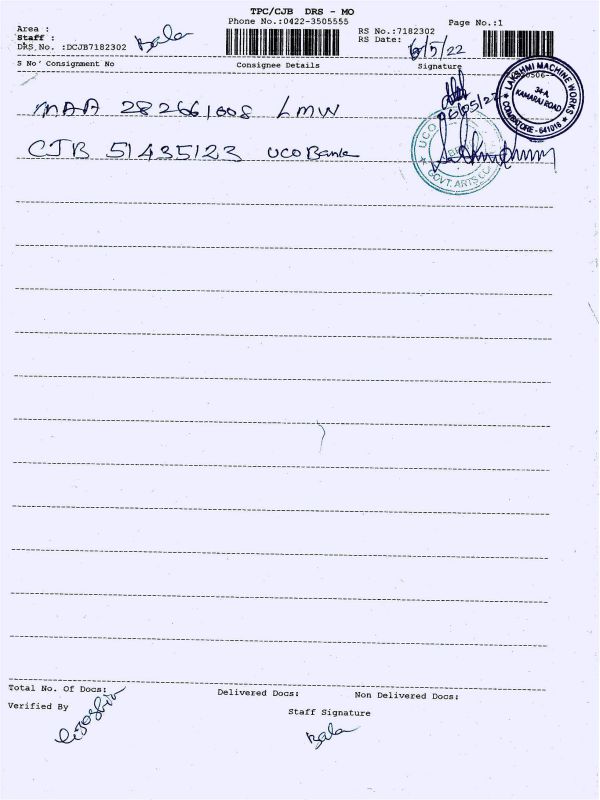 TPC/CJB DRS - MO
Phone No.:0422-3505555
Page No.:1
Area :
Staff : Bala
DRS No. :DCJB7182302
RS No.:7182302
RS Date: 6/5/22
S No Consignment No
Consignee Details
Signature
MAA 282661008 LMW
06/05/22
LAKSHMI MACHINE WORKS
34-A,
KAMARAJ ROAD
COIMBATORE - 641018
CJB 51435123 UCO Bank
UCO
GOVT. ARTS CO
Total No. Of Docs:
Delivered Docs:
Non Delivered Docs:
Verified By
Staff Signature
Bala